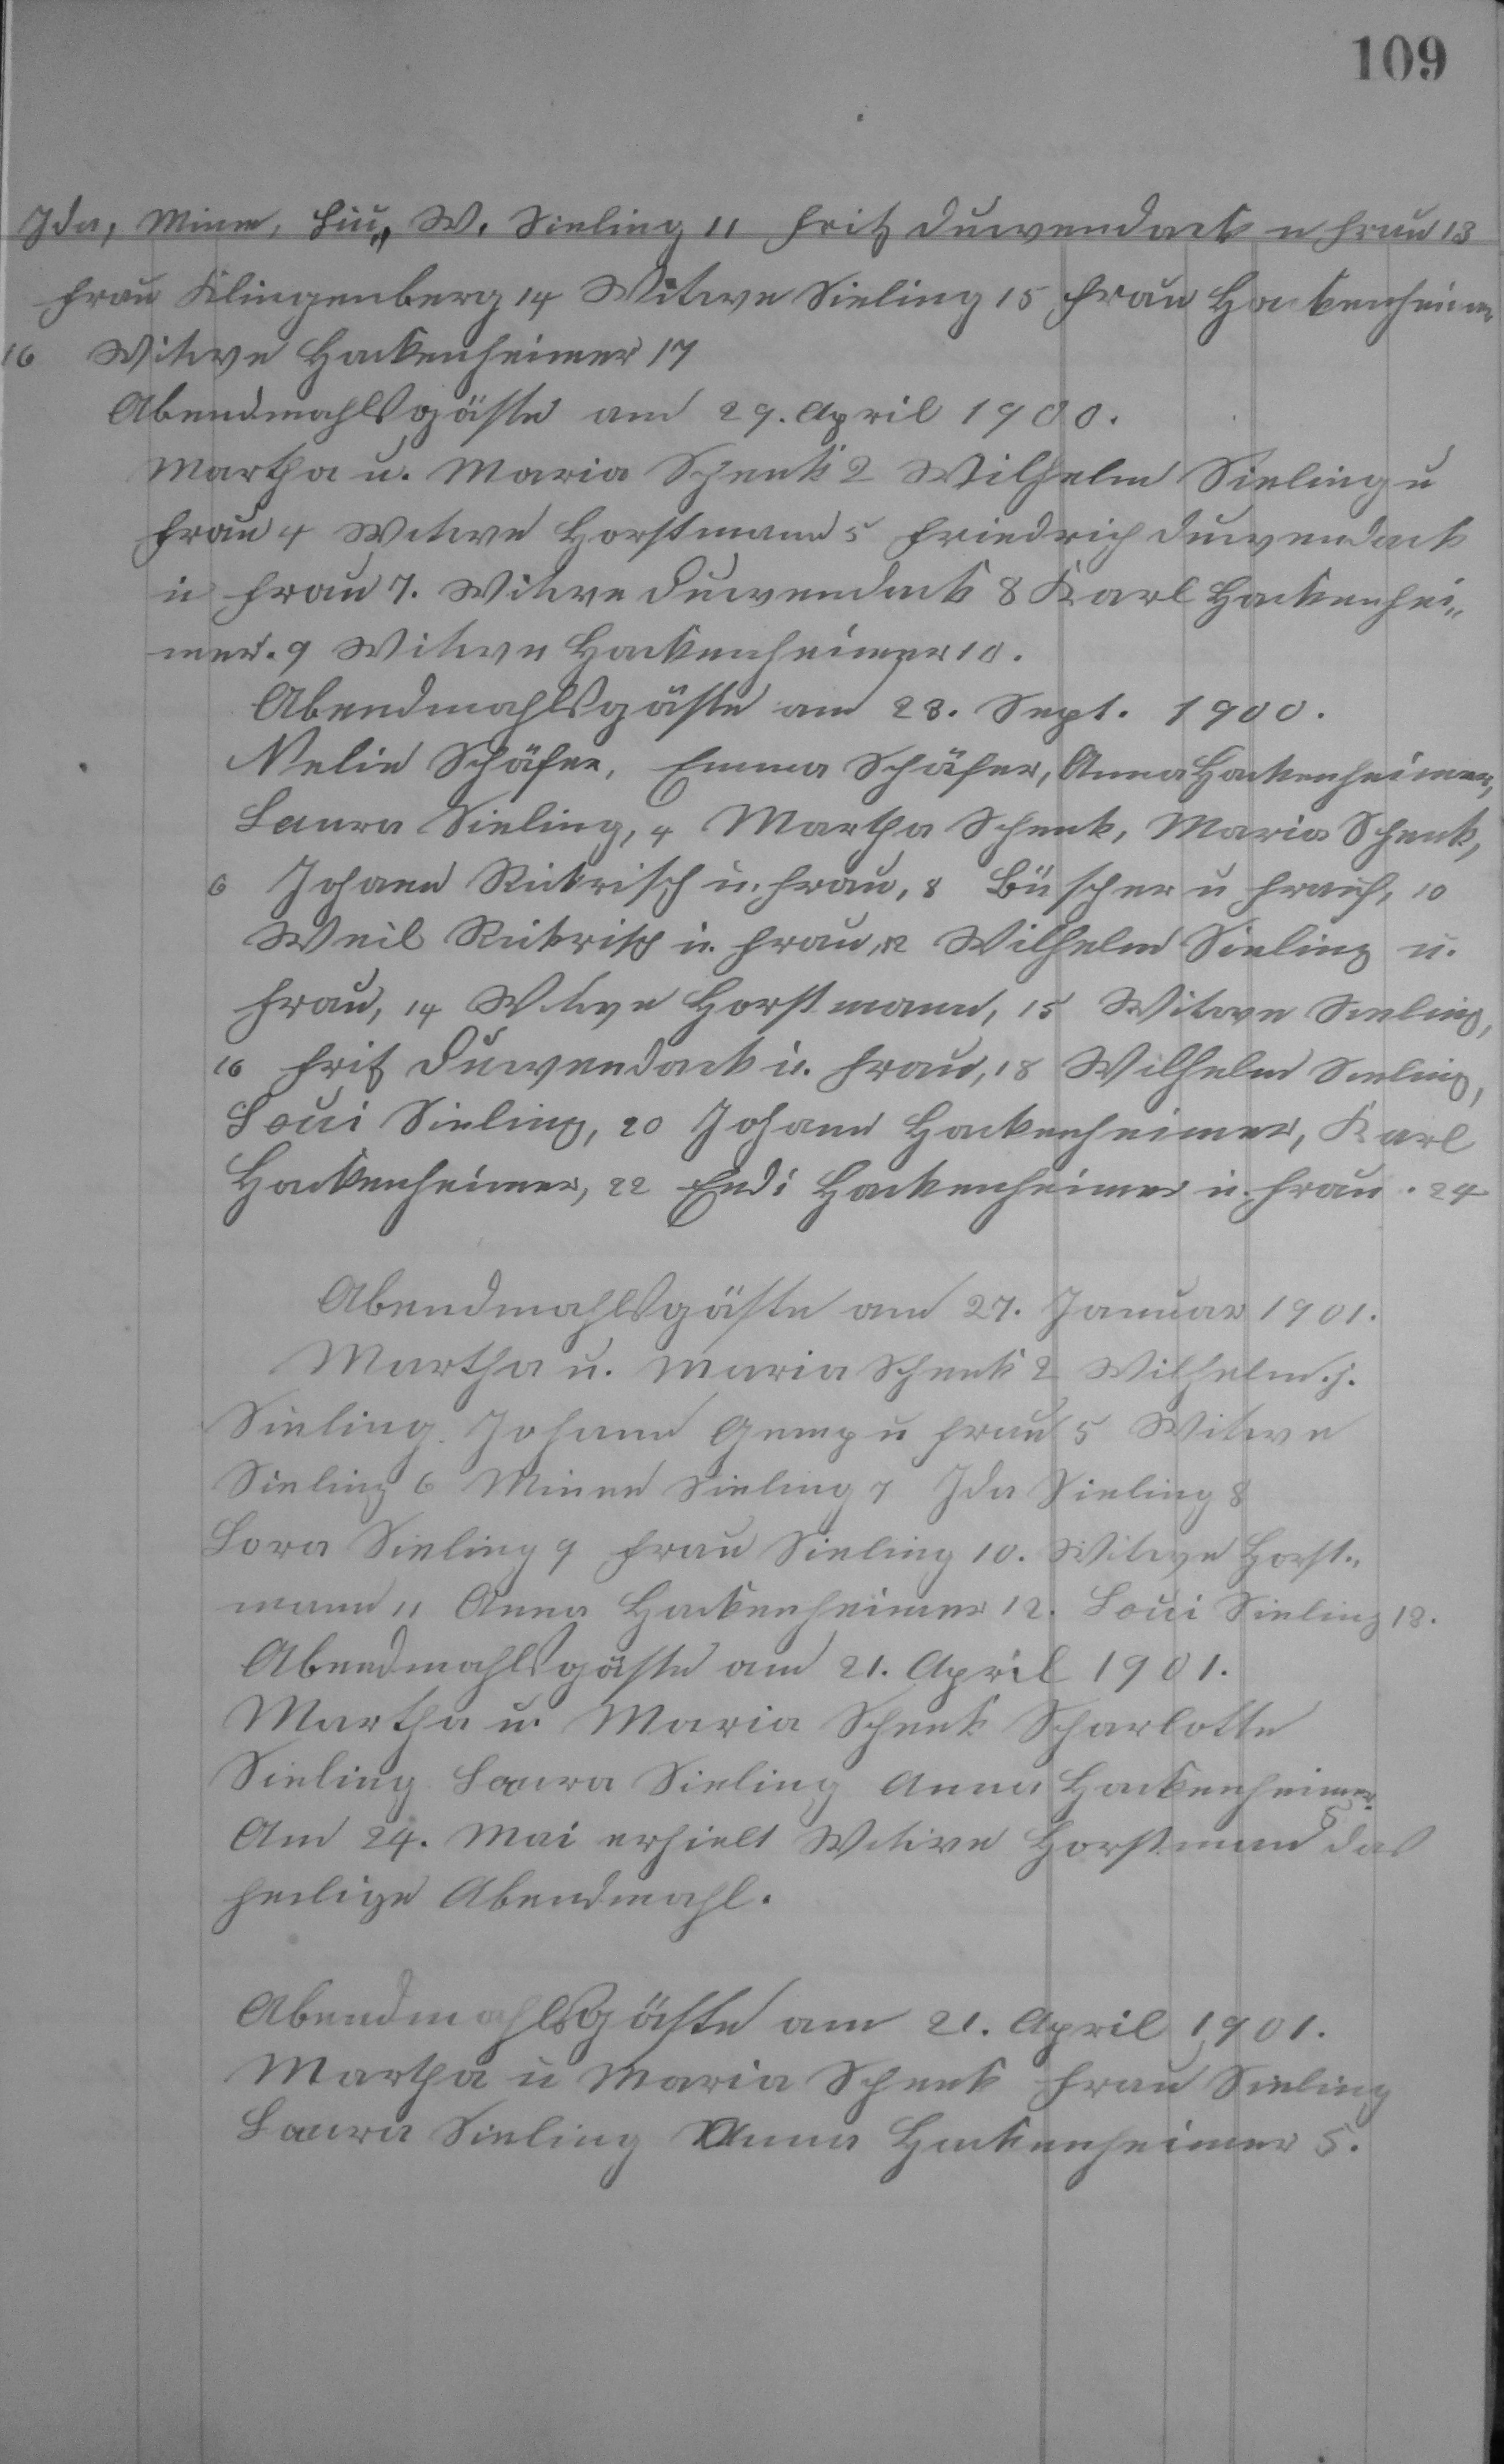 109
Ida, Minna, W. Sieling 11 Fritz Duwendack u Frau 13
Frau Klingenberg 14 Witwe Sieling 15 Frau Hackenheimer
16 Witwe Hackenheimer 17
Abendmahlsgäste am 29. April 1900.
Martha u. Maria Schenk 2 Wilhelm Sieling u
Frau 4 Witwe Horstmann 5 Friedrich Duwendack
u Frau 7. Witwe Duwendack 8 Karl Hackenhei„
mer. 9 Witwe Hackenheimer 10.
Abendmahlsgäste am 23. Sept. 1900.
Nelie Schäfer, Emma Schäfer, Anna Hackenheimer,
Laura Sieling, 4 Martha Schenk, Maria Schenk,
6 Johann Rickrisch u. Frau, 8 Büscher u Frau, 10
Weil Rickrisch u. Frau, 12 Wilhelm Sieling u.
Frau, 14 Witwe Horstmann, 15 Witwe Sieling,
16 Fritz Duwendack u. Frau, 18 Wilhelm Sieling,
Loui Sieling, 20 Johann Hackenheimer, Karl
Hackenheimer, 22 Hackenheimer u. Frau. 24
Abendmahlsgäste am 27. Januar 1901.
Martha u. Maria Schenk 2 Wilhelm. j.
Sieling. Johann u Frau 5 Witwe
Sieling 6 Minna Sieling 7 Ida Sieling 8
Lora Sieling 9 Frau Sieling 10. Witwe Horst„
mann 11 Anna Hackenheimer 12. Loui Sieling 13.
Abendmahlsgäste am 21. April 1901.
Martha u. Maria Schenk Scharlotte
Sieling Laura Sieling Anna Hackenheimer. 5
Am 24. Mai erhielt Witwe Horstmann das
heilige Abendmahl.
Abendmahlsgäste am 21. April 1901.
Martha u Maria Schenk Frau Sieling
Laura Sieling Anna Hackenheimer 5.